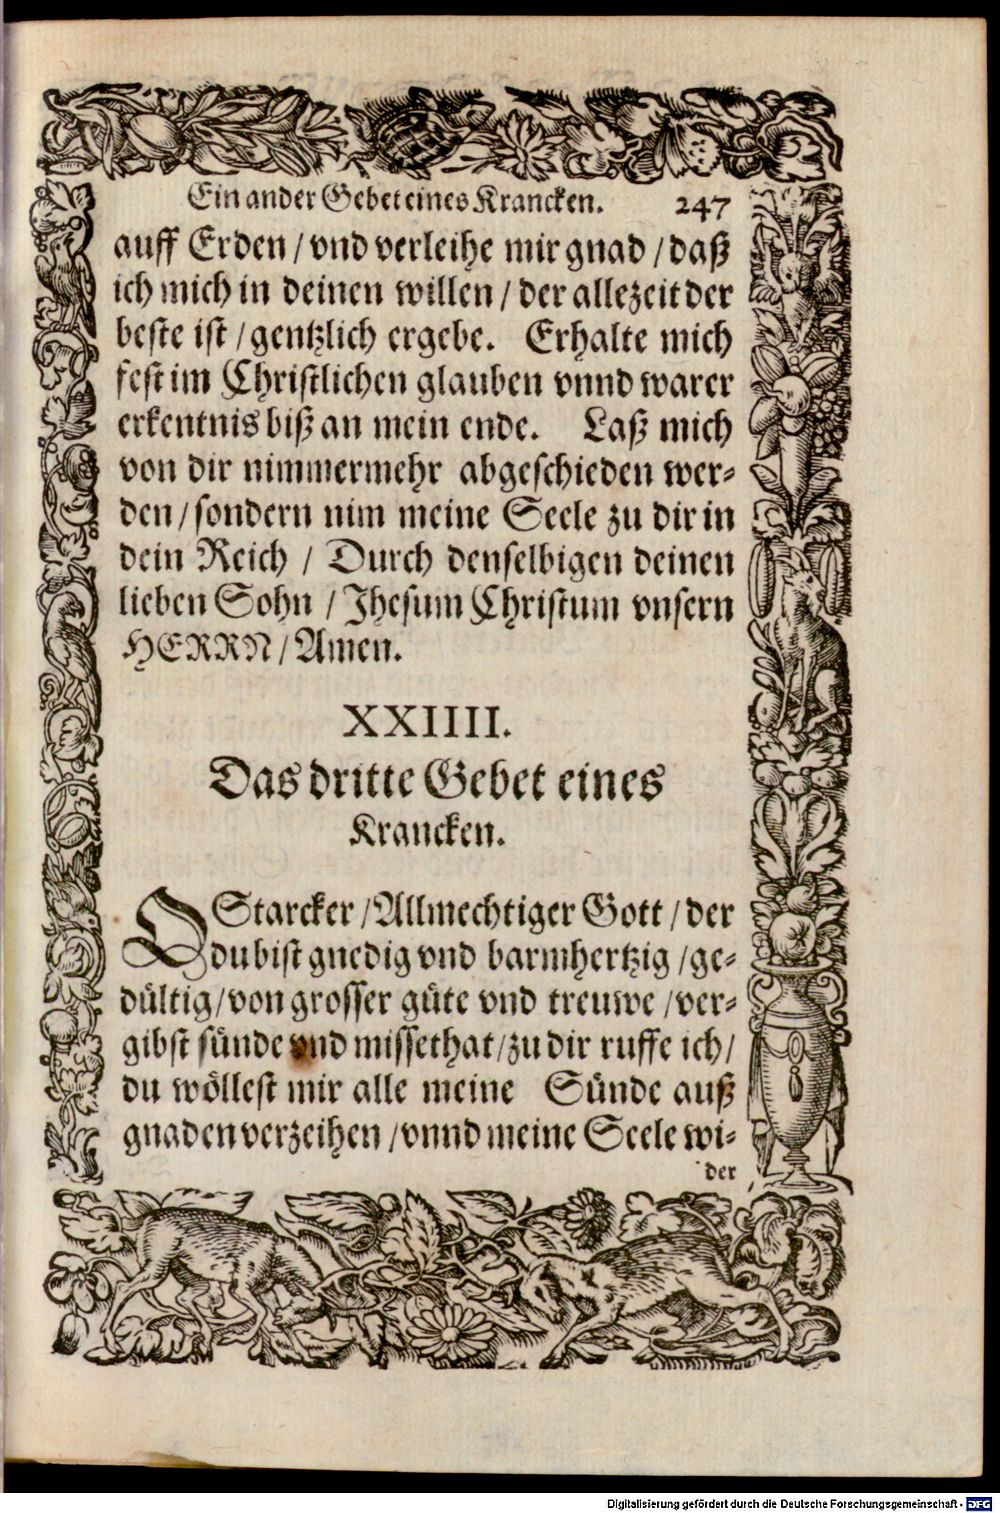 Ein ander Gebet eines Krancken. 247
auff Erden / vnd verleihe mir gnad / daß
ich mich in deinen willen / der allezeit der
beste ist / gentzlich ergebe. Erhalte mich
fest im Christlichen glauben vnnd warer
erkentnis biß an mein ende. Laß mich
von dir nimmermehr abgeschieden wer-
den / sondern nim meine Seele zu dir in
dein Reich / Durch denselbigen deinen
lieben Sohn / Jhesum Christum vnsern
HERRN / Amen.
XXIIII.
Das dritte Gebet eines
Krancken.
O Starcker / Allmechtiger Gott / der
du bist gnedig vnd barmhertzig / ge-
dültig / von grosser güte vnd treuwe / ver-
gibst sünde vnd missethat / zu dir ruffe ich /
du wöllest mir alle meine Sünde auß
gnaden verzeihen / vnnd meine Seele wi-
der
Digitalisierung gefördert durch die Deutsche Forschungsgemeinschaft - DFG